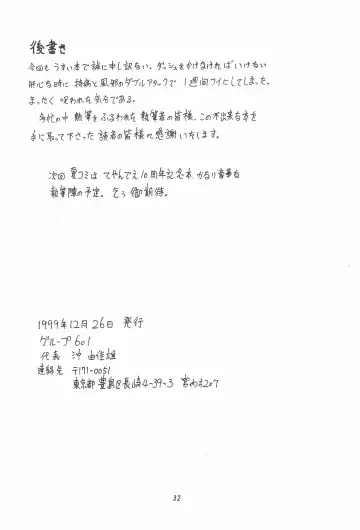 後書き
今回もうすい本で誠に申し訳ない。ダッシュをかけなければいけない
肝心な時に持病と風邪のダブルアタックで1週間フイにしてしまった。
まったく呪われた気分である。
多忙の中 熱筆をふるわれた執筆者の皆様、この不出来な本を
手に取って下さった読者の皆様に感謝いたします。
次回 夏コミは てやんでえ10周年記念本、かなり豪華な
執筆陣の予定。乞う御期待。
1999年12月26日 発行
グループ601
代表 沖 由佳雄
連絡先 〒171-0051
東京都豊島区長崎4-39-3 207
32